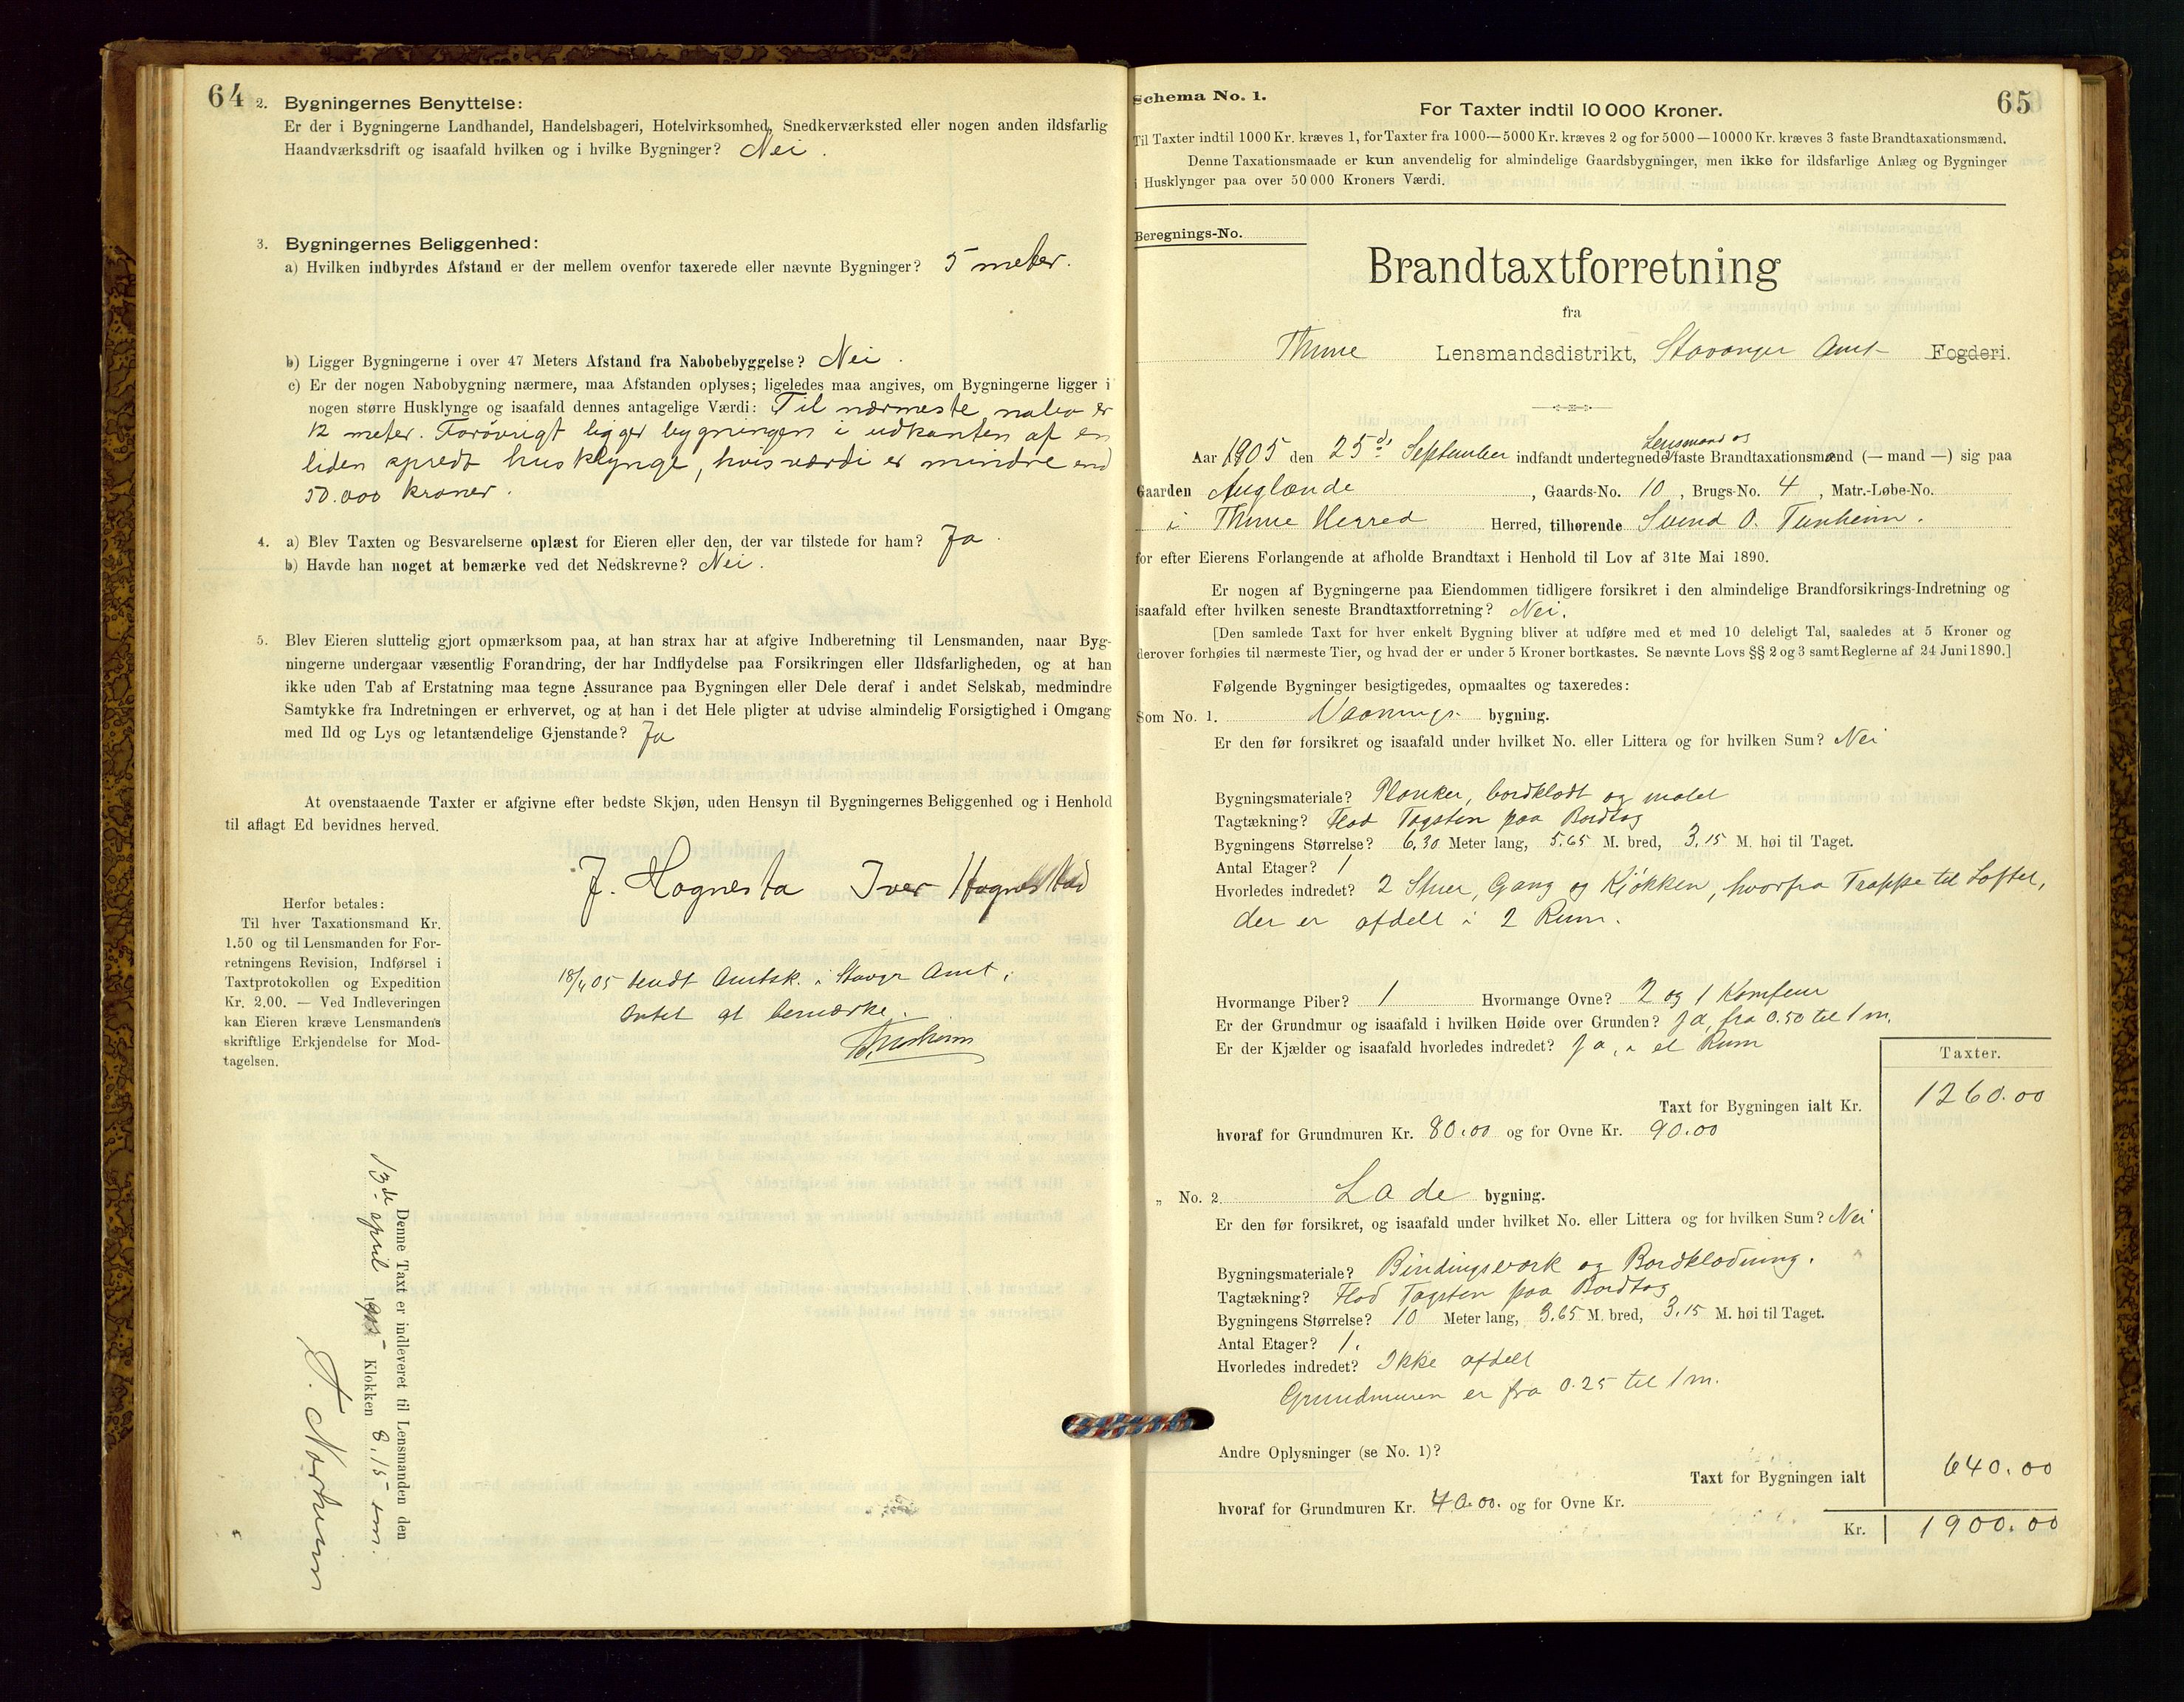 64
2. Bygningernes Benyttelse:
Er der i Bygningerne Landhandel, Handelsbageri, Hotelvirksomhed, Snedkerværksted eller nogen anden ildsfarlig
Haandværksdrift og isaafald hvilken og i hvilke Bygninger? Nei.
3. Bygningernes Beliggenhed:
a) Hvilken indbyrdes Afstand er der mellem ovenfor taxerede eller nævnte Bygninger? 5 meter.
b) Ligger Bygningerne i over 47 Meters Afstand fra Nabobebyggelse? Nei.
c) Er der nogen Nabobygning nærmere, maa Afstanden oplyses; ligeledes maa angives, om Bygningerne ligger i
nogen større Husklynge og isaafald dennes antagelige Værdi: Til nærmeste nabo er
12 meter. Forøvrigt ligger bygningen i udkanten af en
liden spredt husklynge, hvis værdi er mindre end
50.000 kroner.
4. a) Blev Taxten og Besvarelserne oplæst for Eieren eller den, der var tilstede for ham? Ja.
b) Havde han noget at bemærke ved det Nedskrevne? Nei.
5. Blev Eieren sluttelig gjort opmærksom paa, at han strax har at afgive Indberetning til Lensmanden, naar Byg-
ningerne undergaar væsentlig Forandring, der har Indflydelse paa Forsikringen eller Ildsfarligheden, og at han
ikke uden Tab af Erstatning maa tegne Assurance paa Bygningen eller Dele deraf i andet Selskab, medmindre
Samtykke fra Indretningen er erhvervet, og at han i det Hele pligter at udvise almindelig Forsigtighed i Omgang
med Ild og Lys og letantændelige Gjenstande? Ja
At ovenstaaende Taxter er afgivne efter bedste Skjøn, uden Hensyn til Bygningernes Beliggenhed og i Henhold
til aflagt Ed bevidnes herved.
J. Hognesta Iver Hognestad
Herfor betales:
Til hver Taxationsmand Kr.
1.50 og til Lensmanden for For-
retningens Revision, Indførsel i
Taxtprotokollen og Expedition
Kr. 2.00. — Ved Indleveringen
kan Eieren kræve Lensmandens
skriftlige Erkjendelse for Mod-
tagelsen.
18/4 05 sendt Amtsk. i Stavgr Amt.
Intet at bemærke.
Denne Taxt er indleveret til Lensmanden den
13de april 1905 Klokken 8,15 em.
Schema No. 1.
65
For Taxter indtil 10 000 Kroner.
Til Taxter indtil 1000 Kr. kræves 1, for Taxter fra 1000—5000 Kr. kræves 2 og for 5000—10000 Kr. kræves 3 faste Brandtaxationsmænd.
Denne Taxationsmaade er kun anvendelig for almindelige Gaardsbygninger, men ikke for ildsfarlige Anlæg og Bygninger
i Husklynger paa over 50 000 Kroners Værdi.
Beregnings-No.
Brandtaxtforretning
fra
Thime Lensmandsdistrikt, Stavanger Amt Fogderi.
Lensmand og
Aar 1905 den 25de September indfandt undertegnede faste Brandtaxationsmænd (— mand —) sig paa
Gaarden Auglænde, Gaards-No. 10, Brugs-No. 4, Matr.-Løbe-No.
i Thime Herred Herred, tilhørende Svend O. Tunheim.
for efter Eierens Forlangende at afholde Brandtaxt i Henhold til Lov af 31te Mai 1890.
Er nogen af Bygningerne paa Eiendommen tidligere forsikret i den almindelige Brandforsikrings-Indretning og
isaafald efter hvilken seneste Brandtaxtforretning? Nei.
[Den samlede Taxt for hver enkelt Bygning bliver at udføre med et med 10 deleligt Tal, saaledes at 5 Kroner og
derover forhøies til nærmeste Tier, og hvad der er under 5 Kroner bortkastes. Se nævnte Lovs §§ 2 og 3 samt Reglerne af 24 Juni 1890.]
Følgende Bygninger besigtigedes, opmaaltes og taxeredes:
Som No. 1. Vaanings bygning.
Er den før forsikret og isaafald under hvilket No. eller Littera og for hvilken Sum? Nei
Bygningsmateriale? Planker, bordklædt og malet
Tagtækning? Flad Tagsten paa Bordtag
Bygningens Størrelse? 6,30 Meter lang, 5.65 M. bred, 3,15 M. høi til Taget.
Antal Etager? 1
Hvorledes indredet? 2 Stuer, Gang og Kjøkken, hvorfra Trappe til Loftet,
der er afdelt i 2 Rum.
Hvormange Piber? 1 Hvormange Ovne? 2 og 1 Komfeur
Er der Grundmur og isaafald i hvilken Høide over Grunden? Ja, fra 0.50 til 1 m.
Er der Kjælder og isaafald hvorledes indredet? Ja, i et Rum
Taxter.
Taxt for Bygningen ialt Kr. 1260.00
hvoraf for Grundmuren Kr. 80.00 og for Ovne Kr. 90.00
„ No. 2. Lade bygning.
Er den før forsikret, og isaafald under hvilket No. eller Littera og for hvilken Sum? Nei
Bygningsmateriale? Bindingsverk og Bordklædning.
Tagtækning? Flad Tagsten paa Bordtag
Bygningens Størrelse? 10 Meter lang, 3.65 M. bred, 3,15 M. høi til Taget.
Antal Etager? 1.
Hvorledes indredet? Ikke afdelt
Grundmuren er fra 0.25 til 1 m.
Andre Oplysninger (se No. 1)?
Taxt for Bygningen ialt 640.00
hvoraf for Grundmuren Kr. 40.00. og for Ovne Kr.
Kr. 1900.00